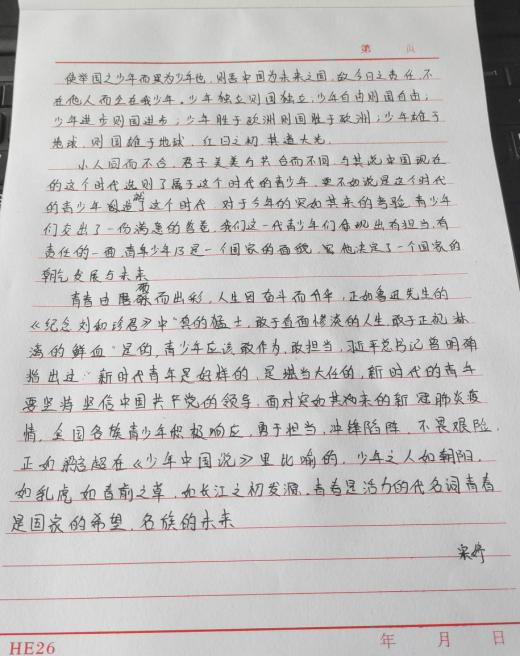 第 页
使举国之少年而果为少年也，则吾中国为未来之国，故今日之责任，不
在他人而全在我少年。少年独立则国独立，少年自由则国自由；
少年进步则国进步；少年胜于欧洲则国胜于欧洲；少年雄于
地球，则国雄于地球，红日之初，其道大光。
小人同而不合，君子美美与共合而不同，与其说中国现在
的这个时代选则了属于这个时代的青少年，更不如说是这个时代
的青少年创造就这个时代，对于今年的突如其来的考验，青少年
们交出了一份满意的答卷，我们这一代青少年们体现出有担当，有
责任的一面，青年少年乃是一个国家的面貌，它他决定了一个国家的
朝气发展与未来
青春由磨砺而出彩，人生因奋斗而升华，正如鲁迅先生的
《纪念刘和珍君》中"真的猛士，敢于直面惨淡的人生，敢于正视淋
漓的鲜血"是的，青少年应该敢作为，敢担当，习近平总书记曾明确
指出过"新时代青年是好样的，是堪当大任的，新时代的青年
要坚持坚信中国共产党的领导，面对突如其来的新冠肺炎疫
情，全国各族青少年积极响应，勇于担当，冲锋陷阵，不畏艰险，
正如梁启超在《少年中国说》里比喻的，少年之人如朝阳，
如乳虎如春前之草，如长江之初发源，青春是活力的代名词青春
是国家的希望，名族的未来
宋婷
HE26
年 月 日